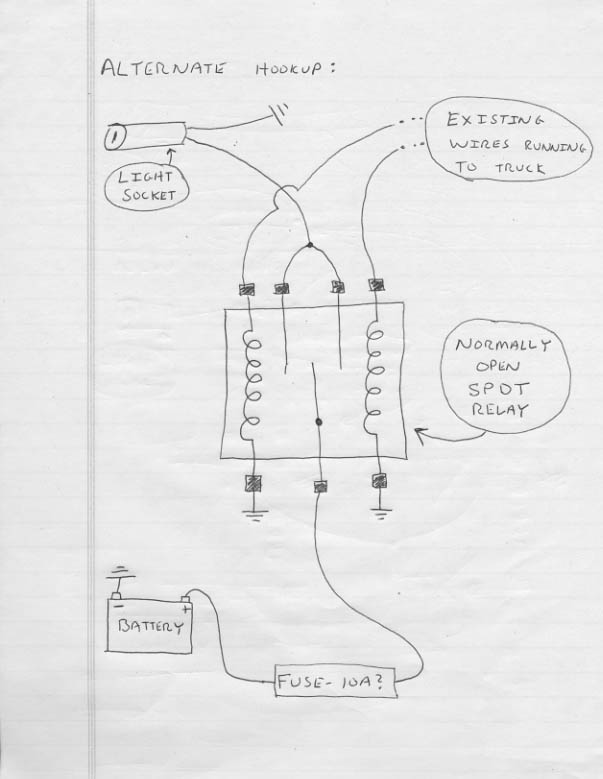 ALTERNATE HOOKUP:
EXISTING
WIRES RUNNING
TO TRUCK
LIGHT
SOCKET
NORMALLY
OPEN
SPDT
RELAY
- +
BATTERY
FUSE-10A?